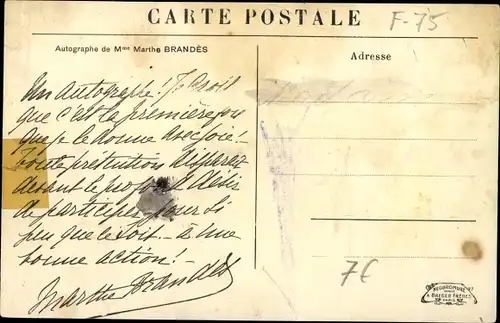 CARTE POSTALE
F-75
Autographe de Mme Marthe BRANDÈS
Adresse
Un Autographe! Je crois
que c'est la première fois
que je le donne avec joie!
Toute prétention disparaît
devant le profond désir
de participer pour si
peu que ce soit - à une
bonne action!
Marthe Brandès
7€
NEOBROMURE
A. BREGER FRÈRES
PARIS